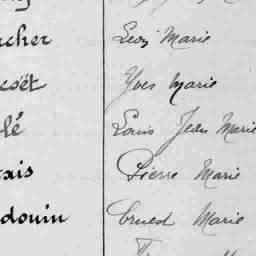 rcher Léon Marie
coët Yves Marie
lé Louis Jean Marie
ais Pierre Marie
douin Ernest Marie